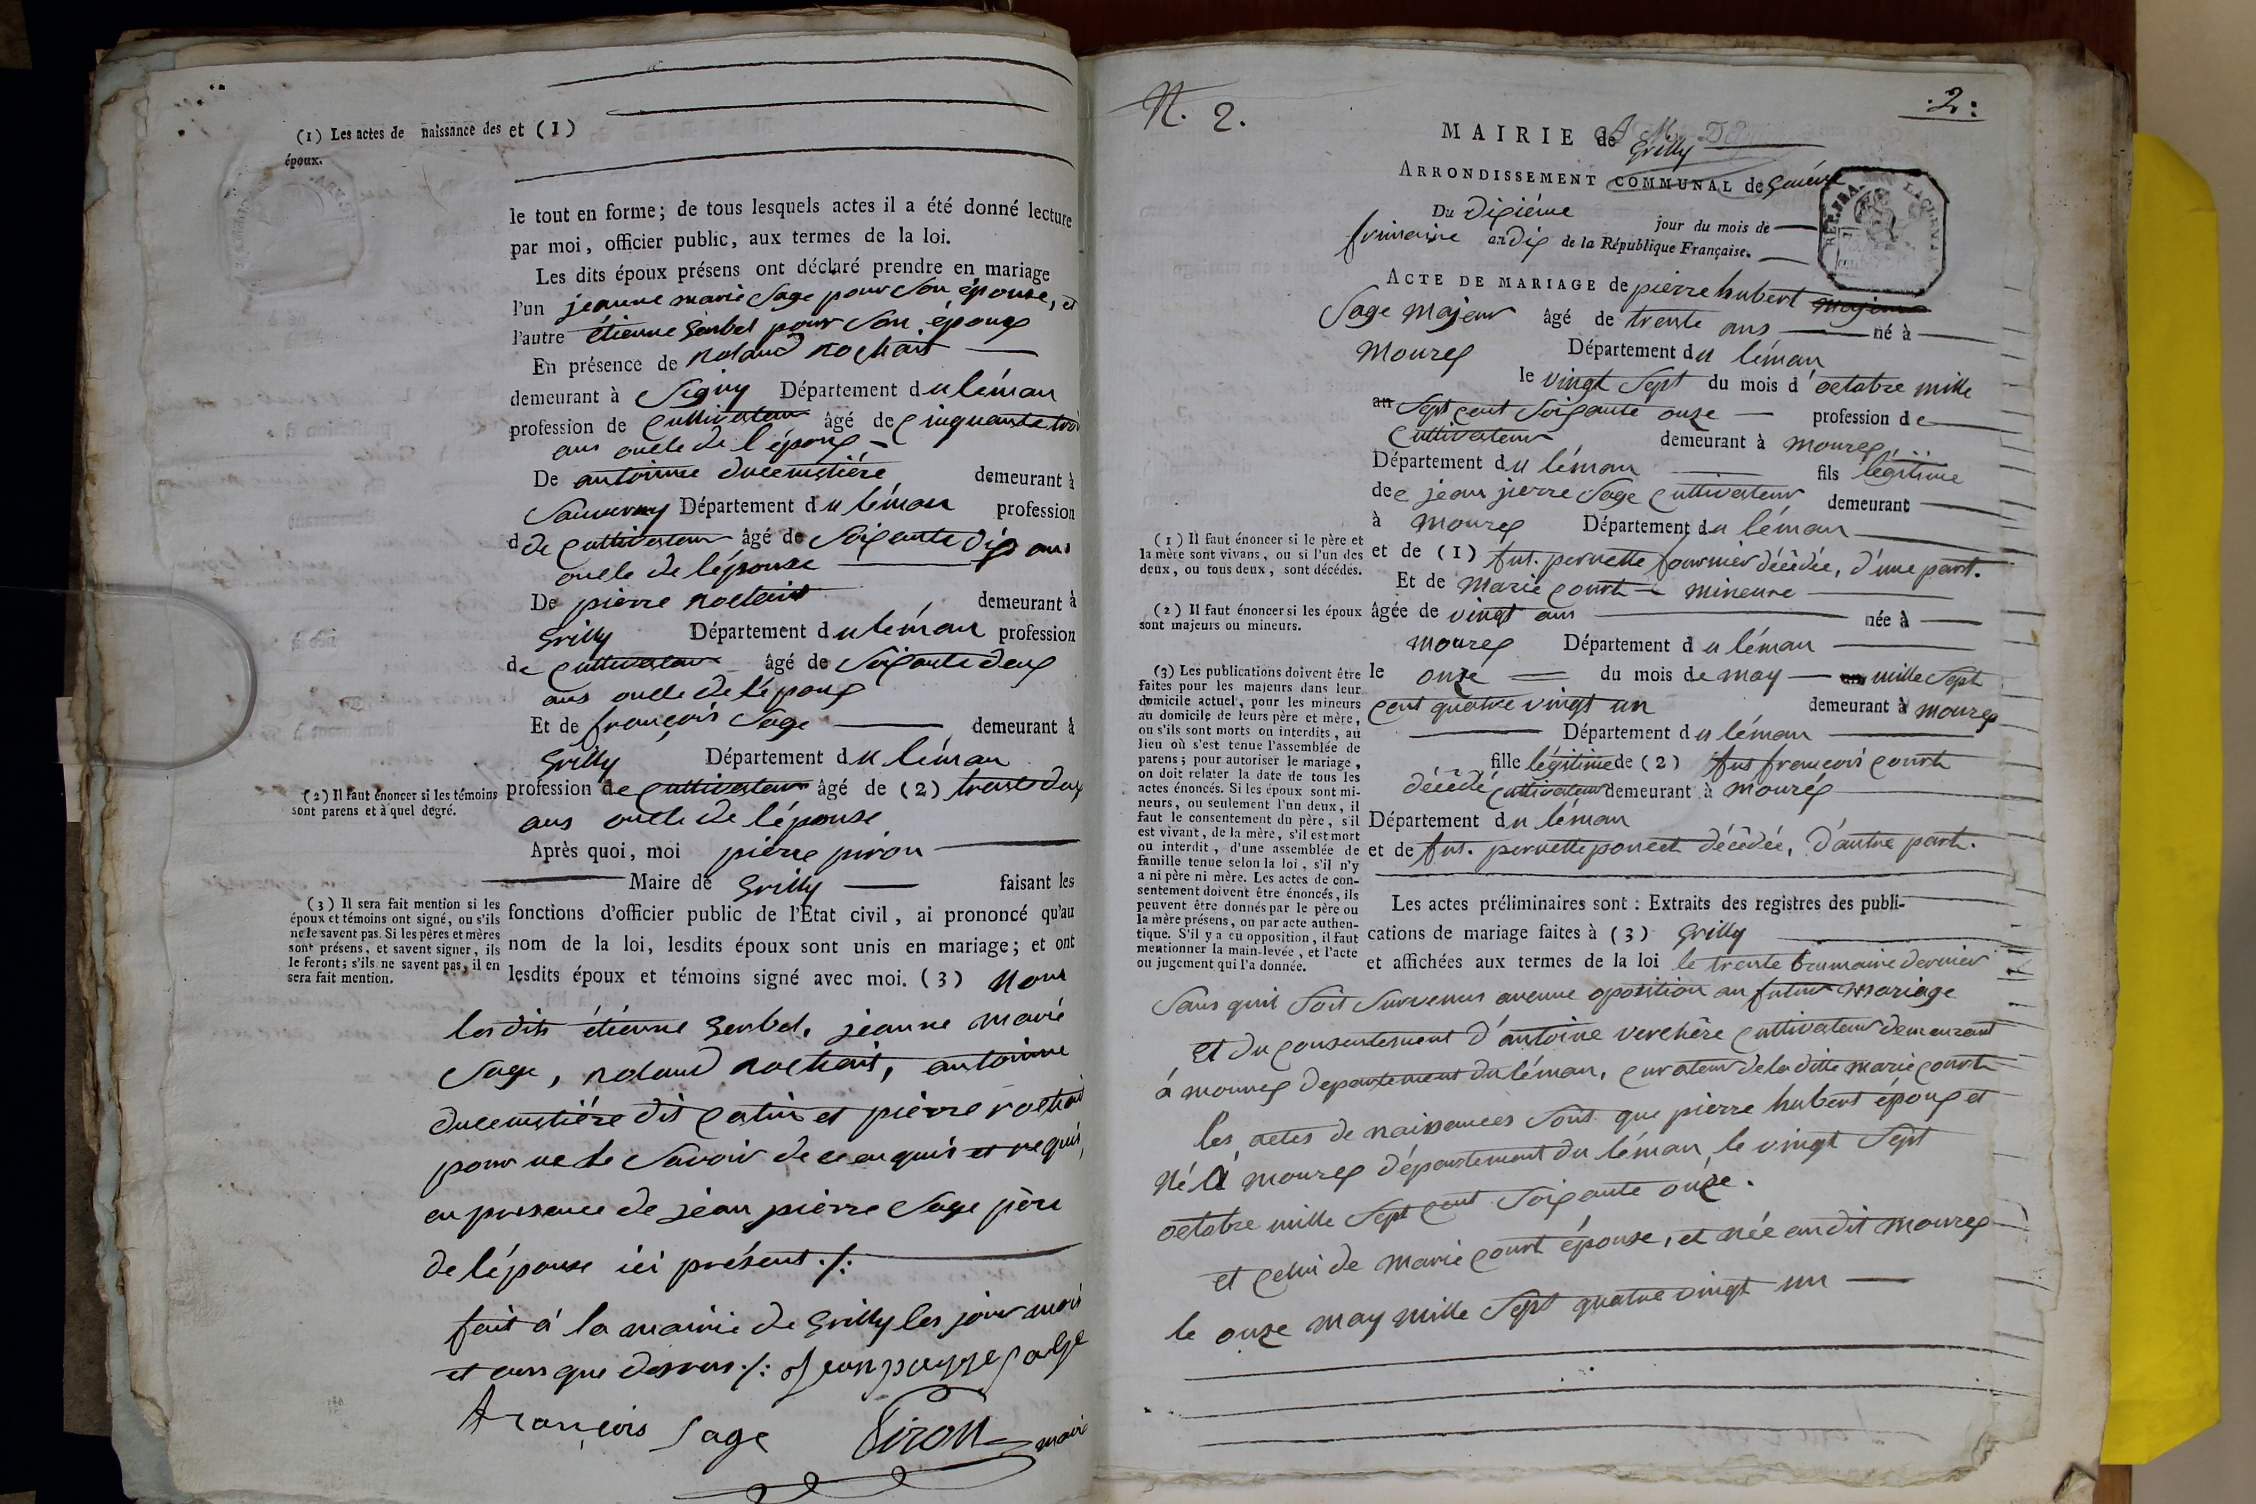 (1) Les actes de naissance des et (1)
époux.
le tout en forme; de tous lesquels actes il a été donné lecture
par moi, officier public, aux termes de la loi.
Les dits époux présens ont déclaré prendre en mariage
l'un jeanne marie Sage pour Son épouse, et
l'autre étienne Gerbel pour Son époux
En présence de Roland Rochait
demeurant à Segny Département du léman
profession de Cultivateur âgé de Cinquante trois
ans oncle de l'époux
De antoinne ducemetiére demeurant à
Sauverny Département du léman profession
d de Cultivateur âgé de Soixante dix ans
oncle de l'épouse
De pierre Rochait demeurant à
Grilly Département du léman profession
de Cultivateur âgé de Soixante deux
ans oncle de l'époux
Et de françois Sage demeurant à
Grilly Département du léman
(2) Il faut énoncer si les témoins
sont parens et à quel degré.
profession de Cultivateur âgé de (2) trente deux
ans oncle de l'épouse
Après quoi, moi pierre piron
Maire de Grilly faisant les
(3) Il sera fait mention si les
époux et témoins ont signé, ou s'ils
ne le savent pas. Si les pères et mères
sont présens, et savent signer, ils
le feront; s'ils ne savent pas, il en
sera fait mention.
fonctions d'officier public de l'État civil, ai prononcé qu'au
nom de la loi, lesdits époux sont unis en mariage; et ont
lesdits époux et témoins signé avec moi. (3) Non
les dits étienne Gerbel, jeanne marie
Sage, Roland Rochait, antoinne
ducemetiére dit Catin et pierre rochait
pour ne le Savoir de ce enquis et requis,
en presence de jean pierre Sage père
de l'épouse ici présent ./.
fait à la mairie de Grilly les jour mois
et ans que dessus ./. Jean
françois Sage Piron maire
N. 2.
2
MAIRIE de Grilly
ARRONDISSEMENT COMMUNAL de Genéve
REP. FRA.
Du dixiéme jour du mois de
frimaire an dix de la République Française.
ACTE DE MARIAGE de pierre hubert majeur
Sage Majeur âgé de trente ans né à
Mourex Département du léman
le vingt Sept du mois d'octobre mille
an Sept cent Soixante onze profession de
Cultivateur demeurant à mourex
Département du léman fils légitime
de jean pierre Sage Cultivateur demeurant
à Mourex Département du léman
(1) Il faut énoncer si le père et
la mère sont vivans, ou si l'un des
deux, ou tous deux, sont décédés.
et de (1) fut. pernette fournier décédée, d'une part.
Et de Marie Court mineure
(2) Il faut énoncer si les époux
sont majeurs ou mineurs.
âgée de vingt ans née à
mourex Département du léman
le onze du mois de may an mille Sept
cent quatre vingt un demeurant à mourex
Département du léman
fille légitime de (2) fut françois Court
décédé Cultivateur demeurant à mourex
Département du léman
et de fut. pernette poncet décédée, d'autre part.
(3) Les publications doivent être
faites pour les majeurs dans leur
domicile actuel, pour les mineurs
au domicile de leurs père et mère,
ou s'ils sont morts ou interdits, au
lieu où s'est tenue l'assemblée de
parens; pour autoriser le mariage,
on doit relater la date de tous les
actes énoncés. Si les époux sont mi-
neurs, ou seulement l'un deux, il
faut le consentement du père, s'il
est vivant, de la mère, s'il est mort
ou interdit, d'une assemblée de
famille tenue selon la loi, s'il n'y
a ni père ni mère. Les actes de con-
sentement doivent être énoncés, ils
peuvent être donnés par le père ou
la mère présens, ou par acte authen-
tique. S'il y a eu opposition, il faut
mentionner la main-levée, et l'acte
ou jugement qui l'a donnée.
Les actes préliminaires sont : Extraits des registres des publi-
cations de mariage faites à (3) Grilly
et affichées aux termes de la loi le trente brumaire dernier
Sans quil Soit Survenus aucune oposition au futur mariage
Et du consentement d'antoine verchère Cultivateur demeurant
à mourex departement du léman, curateur de la ditte marie Court
les actes de naissances sont que pierre hubert époux et
Né à mourex département du léman le vingt Sept
octobre mille Sept cent Soixante onze.
et celui de marie Court épouse, et née au dit mourex
le onze may mille Sept quatre vingt un